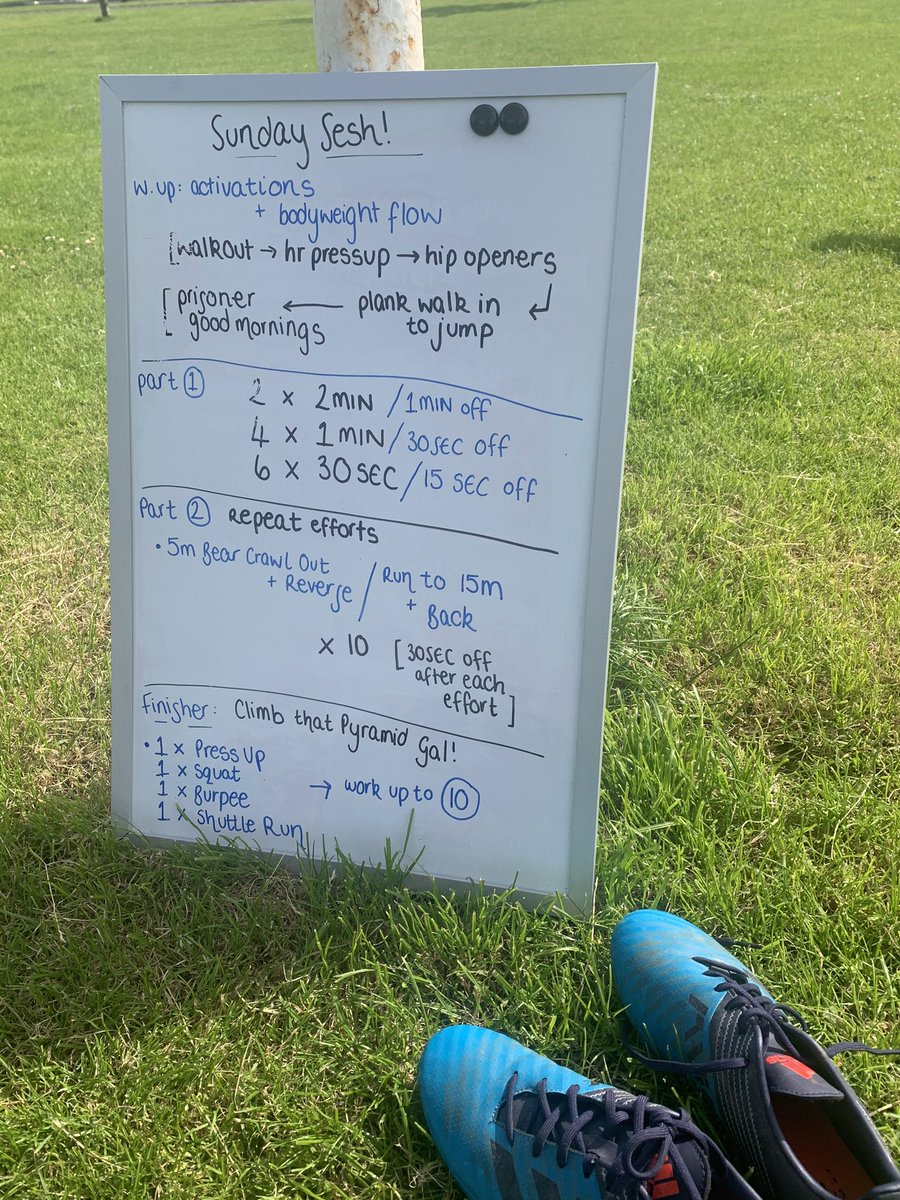 Sunday Sesh!
W.up: activations
+ bodyweight flow
[walkout → hr pressup → hip openers
[prisoner good mornings ← plank walk in to jump ↲
part ① 2 x 2MIN / 1MIN off
4 x 1MIN / 30SEC off
6 x 30SEC / 15 SEC off
Part ② Repeat efforts
• 5m Bear Crawl Out + Reverse / Run to 15m + Back
x 10 [30SEC off after each effort]
Finisher: Climb that Pyramid Gal!
• 1 x Press Up
1 x Squat
1 x Burpee → work up to ⑩
1 x Shuttle Run